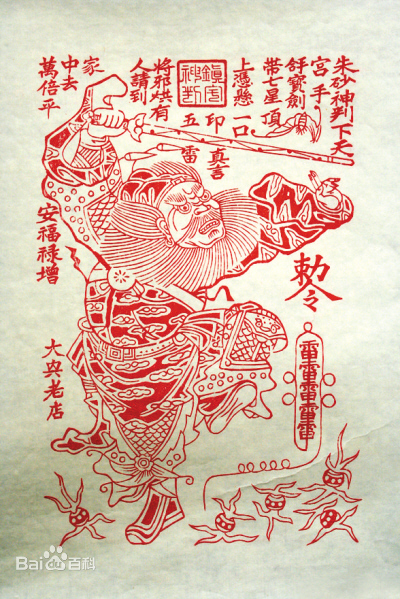 朱砂神判下天
宮手
寶劍
帶七星頂
上憑懸一口
鎮宅神判
印真言
五雷
將邪烘有
人請到
家
中去
萬倍平
安福祿增
大興老店
敕令
雷雷雷雷雷
Bai百科